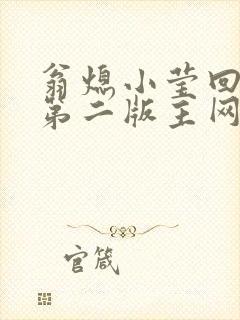 翁熄小莹回
第二版主网
官箴